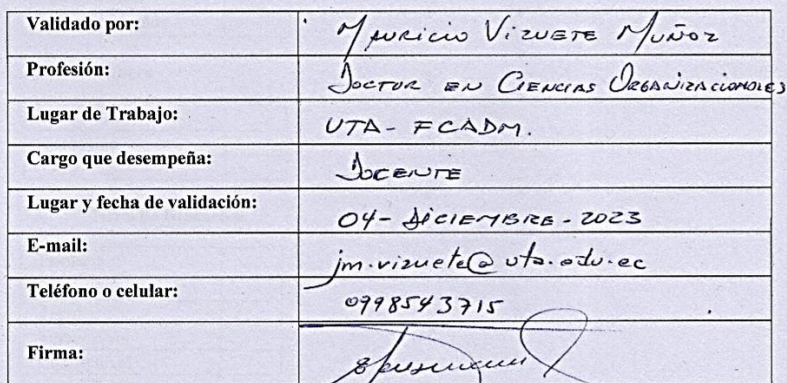 Validado por: Mauricio Vizuete Muñoz
Profesión: Doctor en Ciencias Organizacionales
Lugar de Trabajo: UTA - FCADM.
Cargo que desempeña: Docente
Lugar y fecha de validación: 04 - Diciembre - 2023
E-mail: jm.vizuete@uta.edu.ec
Teléfono o celular: 0998543715
Firma: